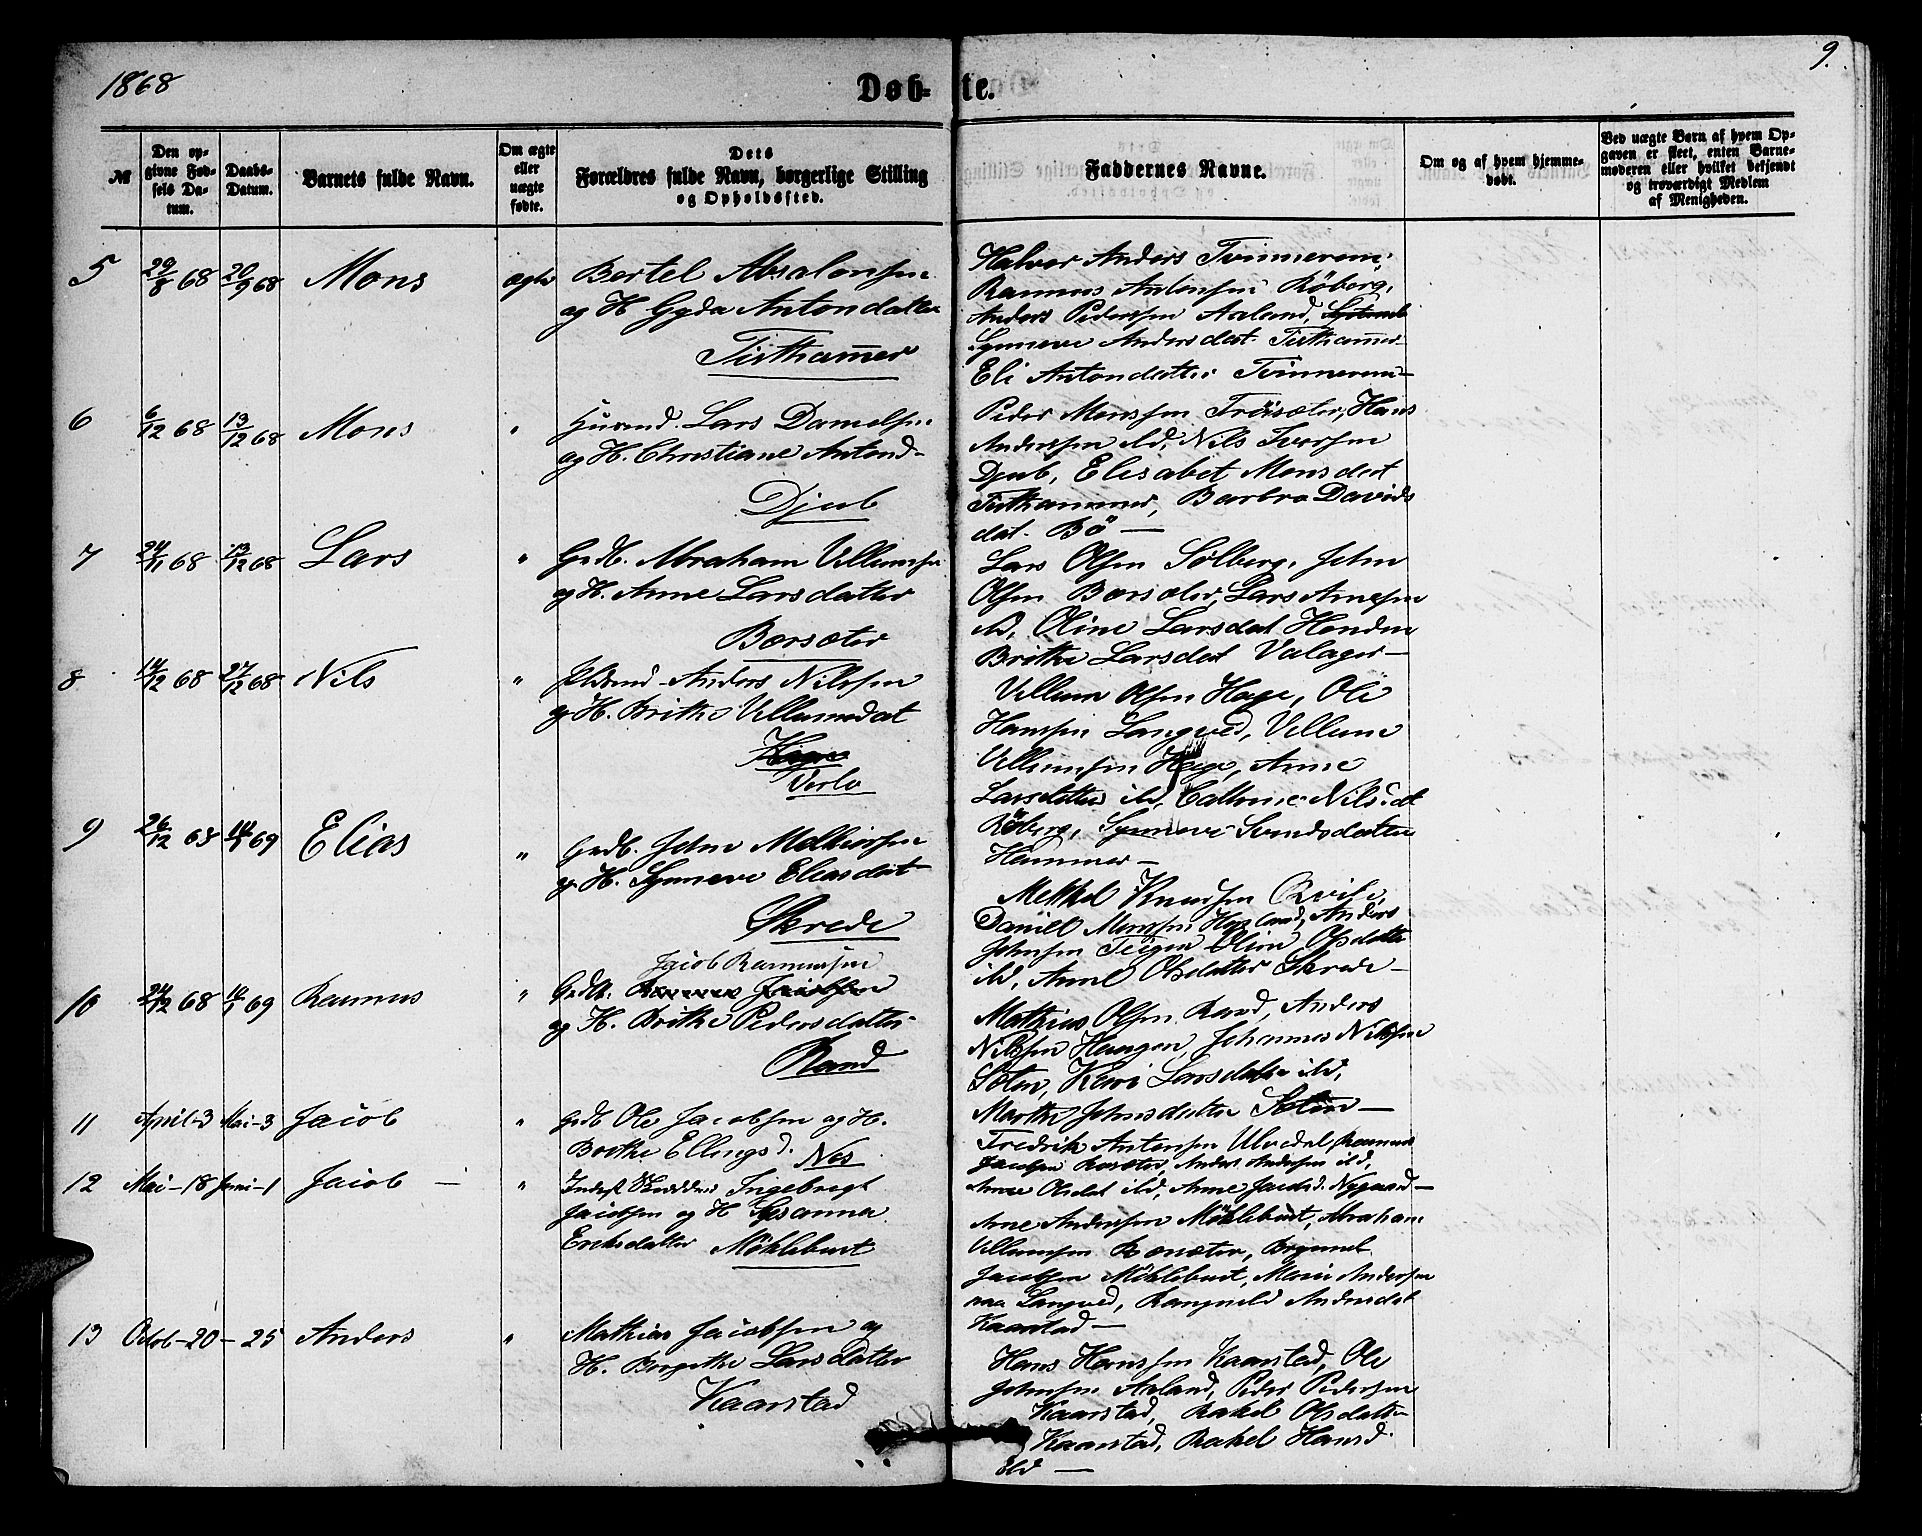 1868
Døb-
te.
9.
№
Den op-
givne Fød-
sels Da-
tum.
Daabs-
Datum.
Barnets fulde Navn.
Om ægte
eller
uægte
fødte.
Dets
Forældres fulde Navn, borgerlige Stilling
og Opholdssted.
Faddernes Navne.
Om og af hvem hjemme-
døbt.
Ved uægte Børn af hvem Op-
gaven er skeet, enten Barne-
moderen eller hvilket bekjendt
og troværdigt Medlem
af Menigheden.
5 29/8 68 20/9 68 Mons ægte Bertel Absalonsen
og H. Gyda Antondatter
Tisthammer
Halvor Anders Tvinnerem,
Rasmus Antonsen Röberg,
Anders Pederssen Aaland,
Synneve Andersdat. Tisthammer
Eli Antondatter Tvinnerem —
6 6/12 68 13/12 68 Mons " Lars Danielsen
og H. Christiane Antond-
Djub
Peder Monssen Tröisæter, Hans
Anderssen ibd, Nils Iversen
Djub, Elisabet Monsdat
Tisthammer, Barbro Davids
dat. Bö —
7 24/11 68 13/12 68 Lars " Grdb. Abraham Villumsen
og H. Anne Larsdatter
Borsæter
Lars Olsen Solberg, John
Olsen Borsæter, Lars Arnesen
ibd, Oline Larsdat Henden
Brithe Larsdat Valager —
8 14/12 68 27/12 68 Nils " Anders Nilssen
og H. Brithe Villumsdat
Hage
Verlo
Villum Olsen Hage, Ole
Hanssen Langved, Villum
Villumsen Hage, Anne
Larsdatter ibd, Cathrine Nilsdt
Röberg, Synneve Svendsdatter
Hammer —
9 26/12 68 69 Elias " Grdb. John Melkiorsen
og H. Synneve Eliasdat
Skrede
Mekkel Knudsen Qvile,
Daniel Monssen Anders
Johnsen Teigen Oline Olsdatter
ibd, Anne Olsdatter Skrede —
Jacob Rasmussen
10 24/12 68 69 Rasmus " Grdb. Rasmus Jacobsen
og H. Brithe Pedersdatter
Rand
Mathias Olsen Rand, Anders
Nilssen Haugen, Johannes Nilssen
Sæten, Kari Larsdatter ibd,
Marthe Johnsdatter Sæten —
11 April-3 Mai-3 Jacob " Grdb Ole Jacobsen og H.
Brithe Ellingsd. Nes
Fredrik Antonsen Ulvedal Rasmus
Jacobsen Anders Andersen ibd,
Anne Olsdat ibd, Anne Jacobsd. Nygaard —
12 Mai-18 Juni-1 Jacob — " Inderst Skrædder Ingebrigt
Jacobsen og H Susanna
Eriksdatter Möklebust
Arne Anderssen Möklebust, Abraham
Villumsen Borsæter, Brynild
Jacobsen Möklebust, Marie Anderssen
Langved, Rangnild Andersdat
Kaarstad —
13 Octob-20 - 25 Anders " Mathias Jacobsen og
H. Birgithe Larsdatter
Kaarstad
Hans Hanssen Kaarstad, Ole
Johnsen Aaland, Peder Pedersen
Kaarstad, Rakel Olsdatter
Kaarstad, Rakel Hansd.
ibd —